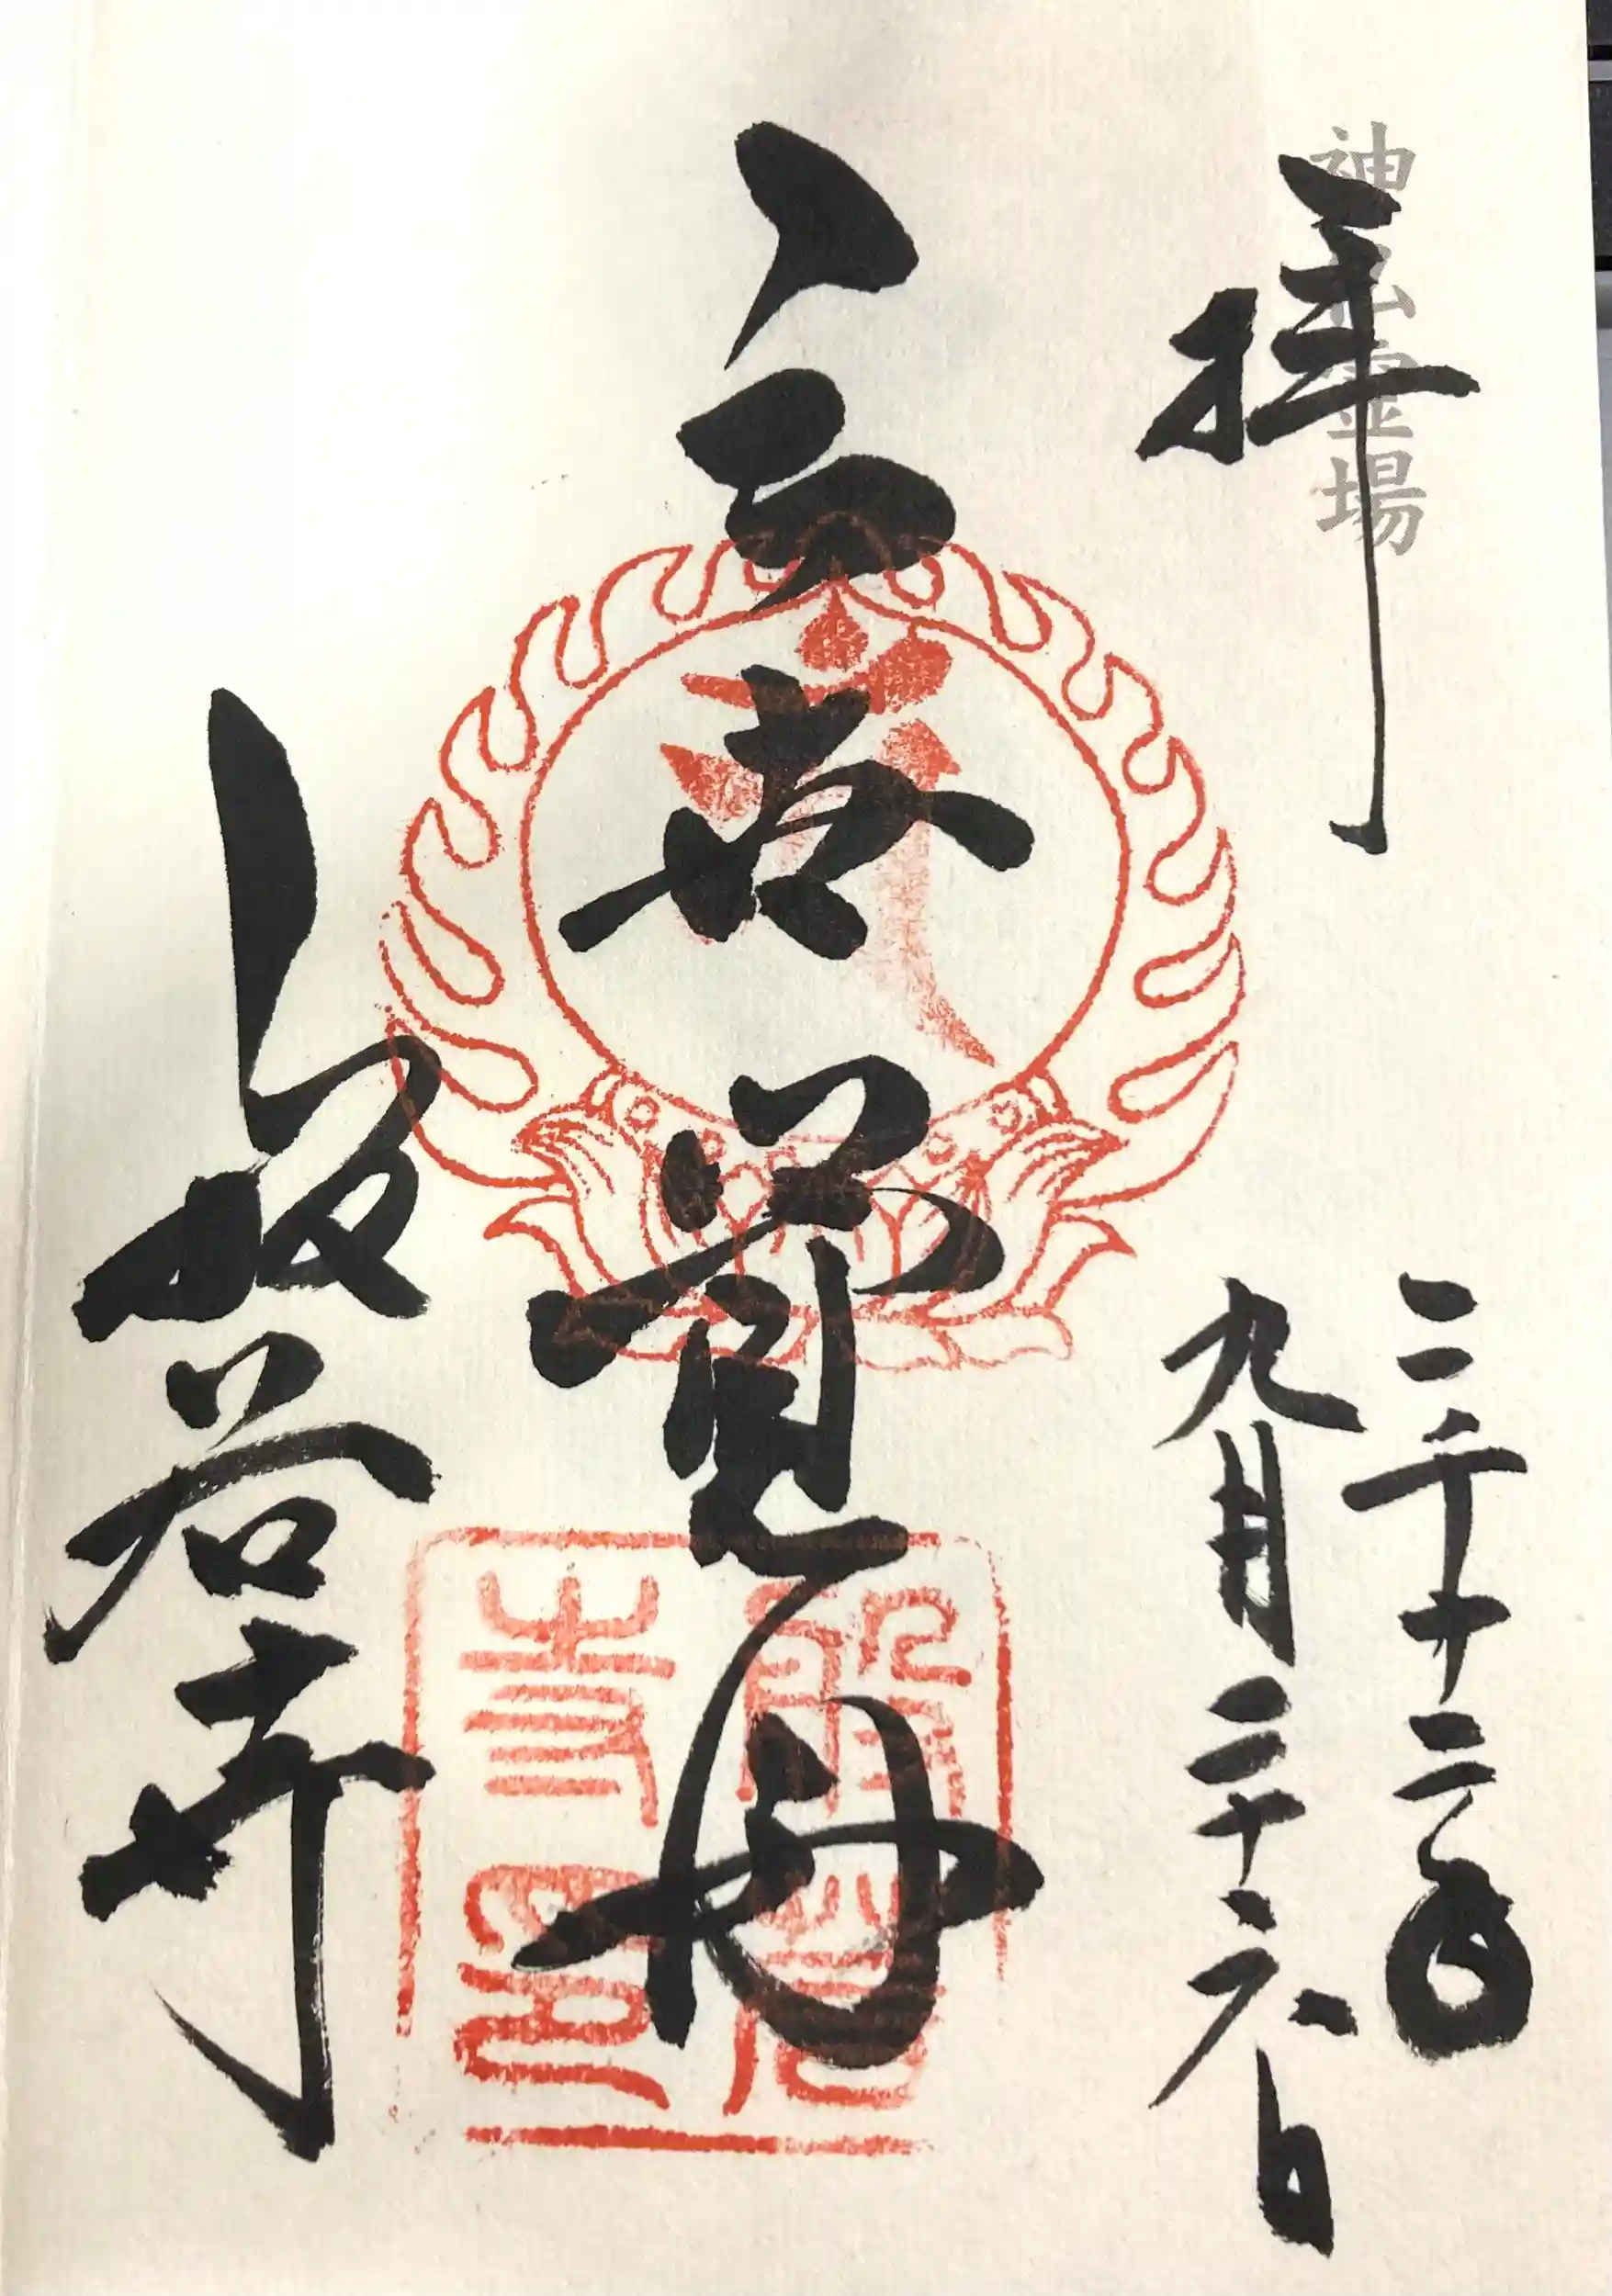 神仏霊場
拝
二千十二年
九月二十六日
三世覚母
般若寺